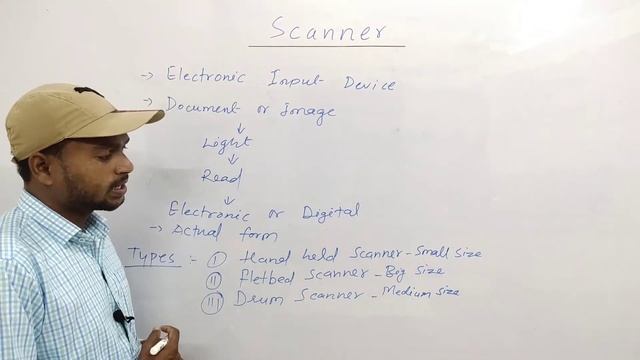 Scanner
→ Electronic Input Device
→ Document or Image
↓
Light
↓
Read
↓
Electronic or Digital
→ Actual form
Types :- (I) Hand held Scanner - Small Size
(II) Fletbed Scanner - Big Size
(III) Drum Scanner - Medium Size